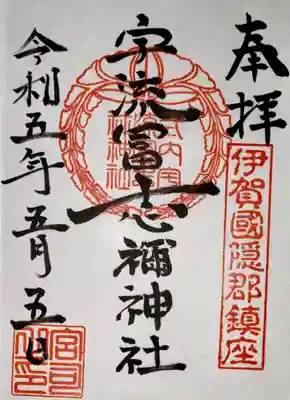 奉拝
伊賀國隠郡鎮座
宇流冨志禰神社
令和五年五月五日